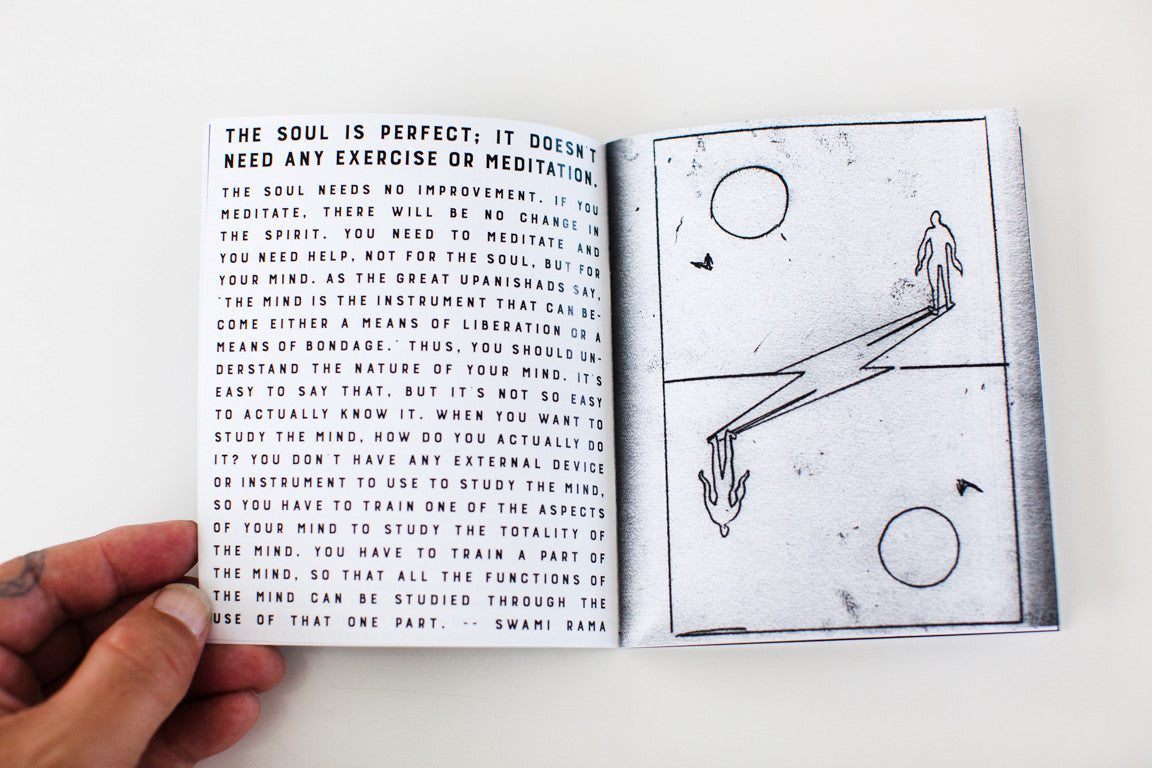 THE SOUL IS PERFECT; IT DOESN'T
NEED ANY EXERCISE OR MEDITATION.
THE SOUL NEEDS NO IMPROVEMENT. IF YOU
MEDITATE, THERE WILL BE NO CHANGE IN
THE SPIRIT. YOU NEED TO MEDITATE AND
YOU NEED HELP, NOT FOR THE SOUL, BUT FOR
YOUR MIND. AS THE GREAT UPANISHADS SAY,
'THE MIND IS THE INSTRUMENT THAT CAN BE-
COME EITHER A MEANS OF LIBERATION OR A
MEANS OF BONDAGE.' THUS, YOU SHOULD UN-
DERSTAND THE NATURE OF YOUR MIND. IT'S
EASY TO SAY THAT, BUT IT'S NOT SO EASY
TO ACTUALLY KNOW IT. WHEN YOU WANT TO
STUDY THE MIND, HOW DO YOU ACTUALLY DO
IT? YOU DON'T HAVE ANY EXTERNAL DEVICE
OR INSTRUMENT TO USE TO STUDY THE MIND,
SO YOU HAVE TO TRAIN ONE OF THE ASPECTS
OF YOUR MIND TO STUDY THE TOTALITY OF
THE MIND. YOU HAVE TO TRAIN A PART OF
THE MIND, SO THAT ALL THE FUNCTIONS OF
THE MIND CAN BE STUDIED THROUGH THE
USE OF THAT ONE PART. -- SWAMI RAMA